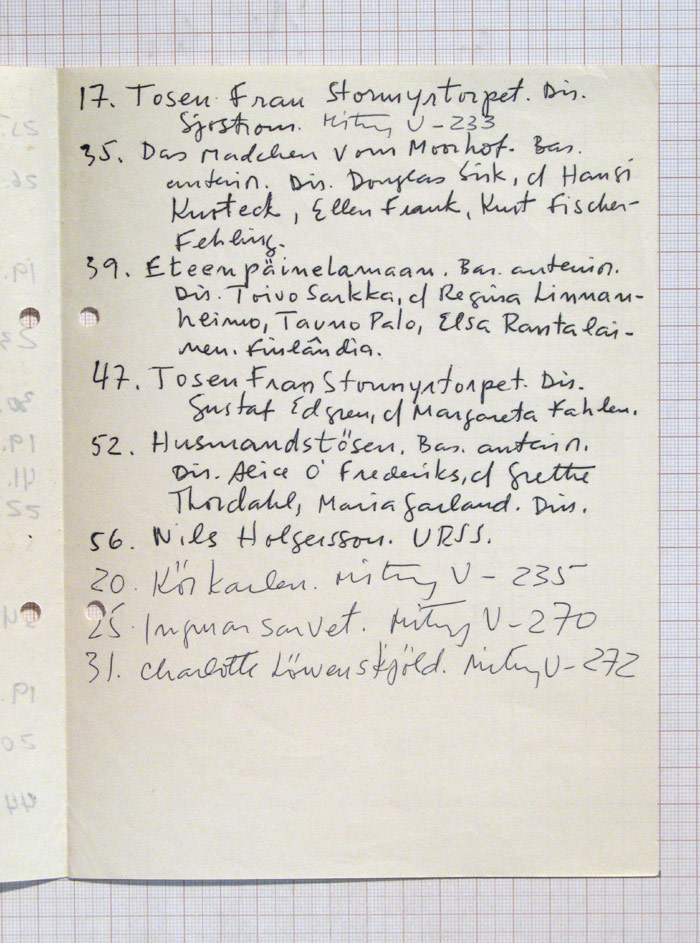 17. Tosen Fran Stormyrtorpet. Dir.
Sjostrom. Mitry U-233
35. Das Madchen Vom Moorhof. Bas.
anterior. Dir. Douglas Sirk, c/ Hansi
Knoteck, Ellen Frank, Kurt Fischer-
Fehling.
39. Eteenpäinelamaan. Bas. anterior.
Dir. Toivo Sarkka, c/ Regina Linnan-
heimo, Tauno Palo, Elsa Rantalai-
nen. Finlândia.
47. Tosen Fran Stormyrtorpet. Dir.
Gustaf Edgren, c/ Margareta Fahlen.
52. Husmandstösen. Bas. anterior.
Dir. Alice O'Frederiks, c/ Grethe
Thordahl, Maria Garland. Din.
56. Nils Holgersson. URSS.
20. Körkarlen. Mitry U-235
25. Ingmarsarvet. Mitry U-270
31. Charlotte Löwenskjöld. Mitry U-272
25
26.
19.
23
30
19.
41.
52
34
19.
20
44